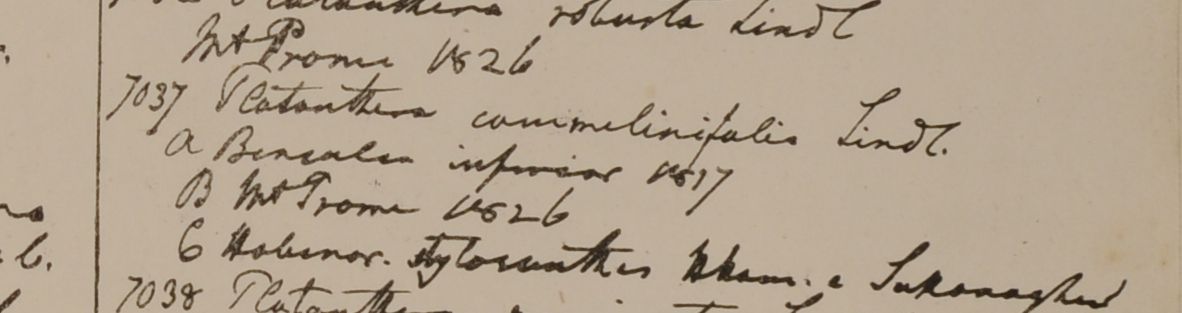 Platanthera robusta Lindl
Mt Prome 1826
7037 Platanthera commelinifolia Lindl.
a Bengalea inferior 1817
B Mt Prome 1826
C Habenar. stylosanthes Hham. e
7038 Platanthera